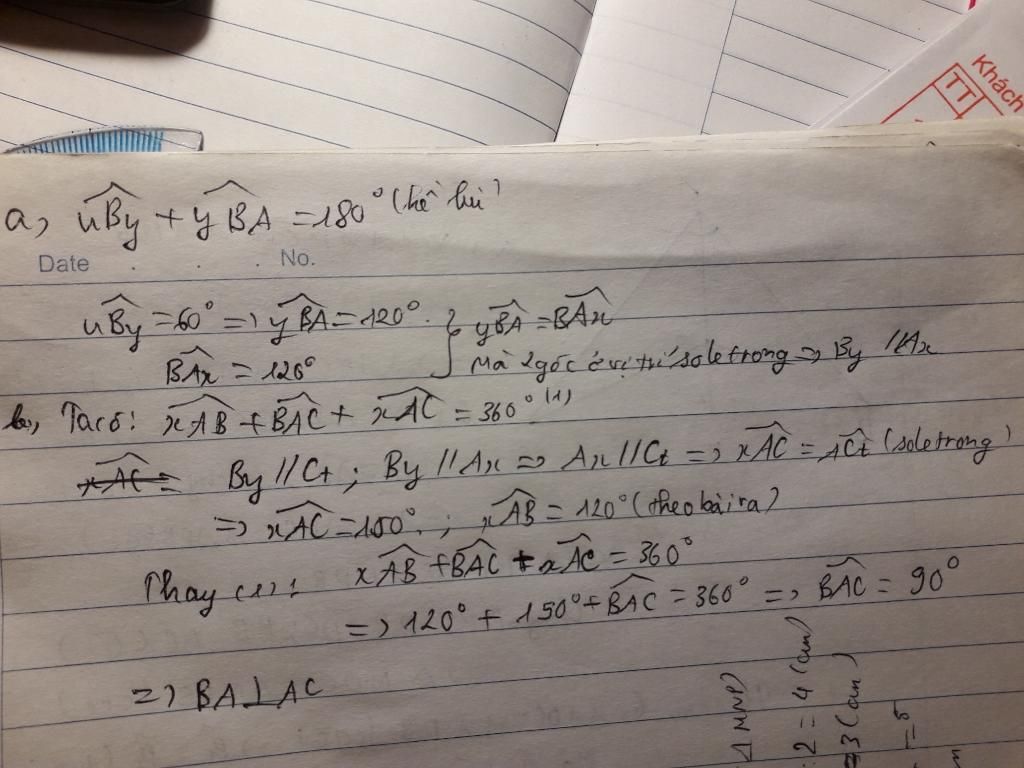 Khách
TT
a, uBy + yBA = 180° (kề bù)
Date . . . No.
uBy = 60° => yBA = 120° } yBA = BAx
BAx = 120° Mà 2 góc ở vị trí soletrong => By // Ax
b, Ta có: xAB + BAC + xAC = 360° (1)
xAC = By // Ct ; By // Ax => Ax // Ct => xAC = ACt (soletrong)
=> xAC = 150° ; xAB = 120° (theo bài ra)
Thay (1): xAB + BAC + xAC = 360°
=> 120° + 150° + BAC = 360° => BAC = 90°
=> BA ⊥ AC
Δ MNP
:2 = 4 (cm)
=3 (cm)
=5